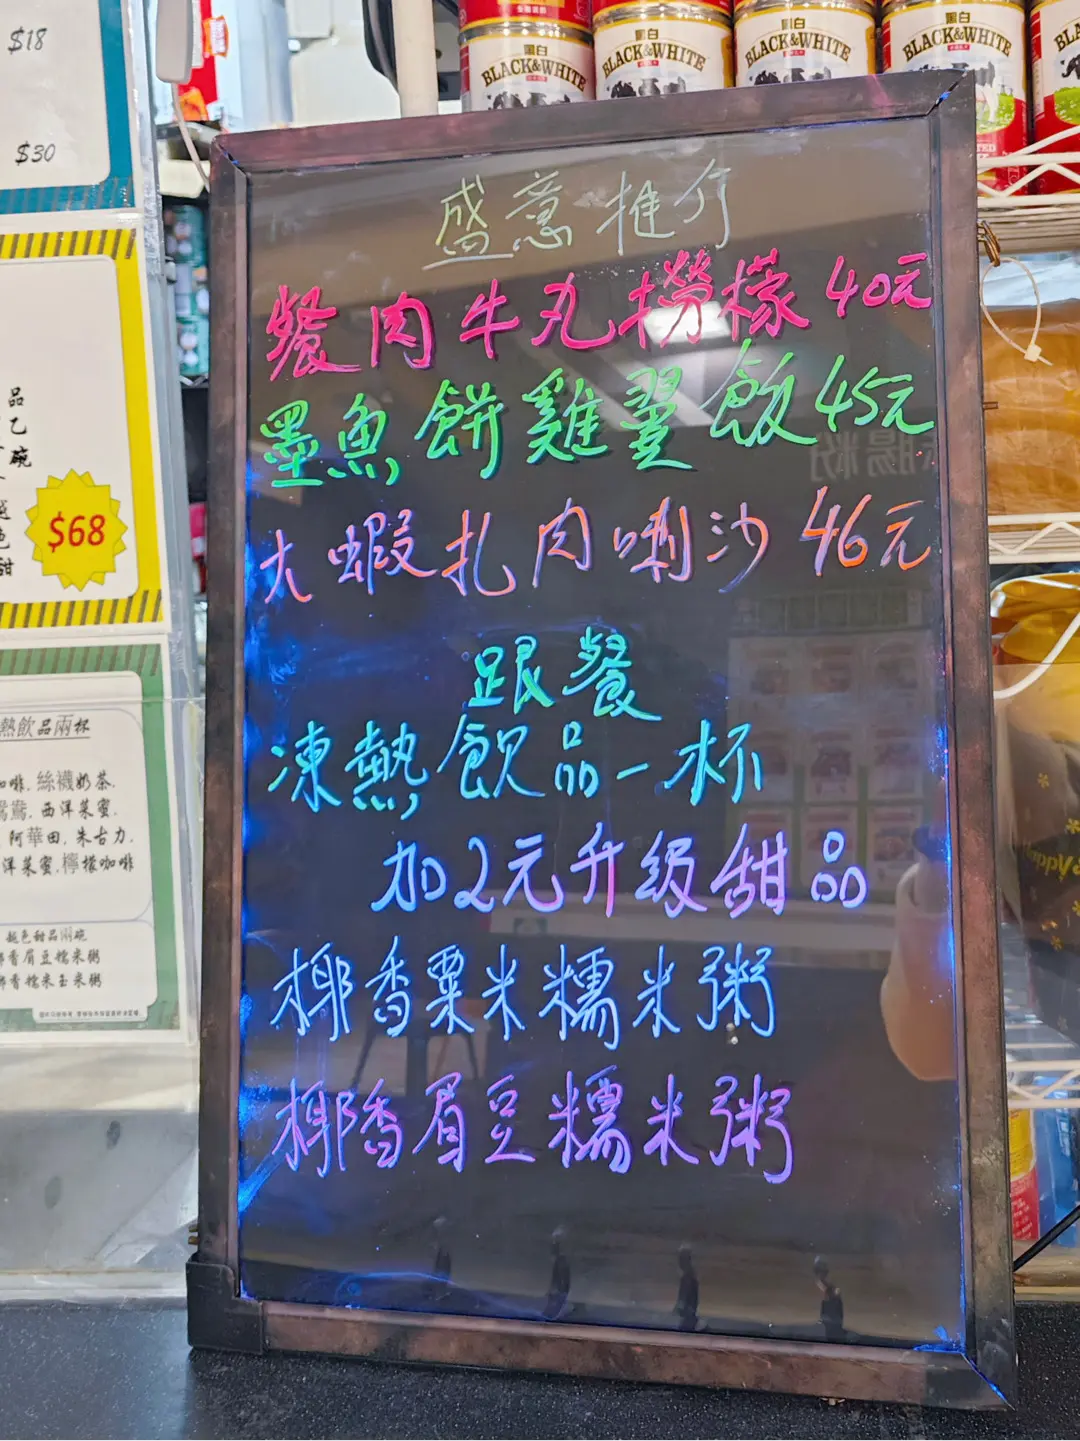 黑白
BLACK&WHITE
黑白
BLACK&WHITE
黑白
BLACK&WHITE
黑白
BLACK&WHITE
$18
$30
盛意推介
餐肉牛丸撈檬40元
墨魚餅雞翼飯45元
大蝦扎肉喇沙46元
跟餐
凍熱飲品一杯
加2元升級甜品
椰香粟米糯米粥
椰香眉豆糯米粥
品
乙
碗
$68
甜
熱飲品兩杯
啡, 絲襪奶茶,
鴛鴦, 西洋菜蜜,
阿華田, 朱古力,
洋菜蜜, 檸檬咖啡
趣色甜品兩碗
香眉豆糯米粥
香糯米玉米粥